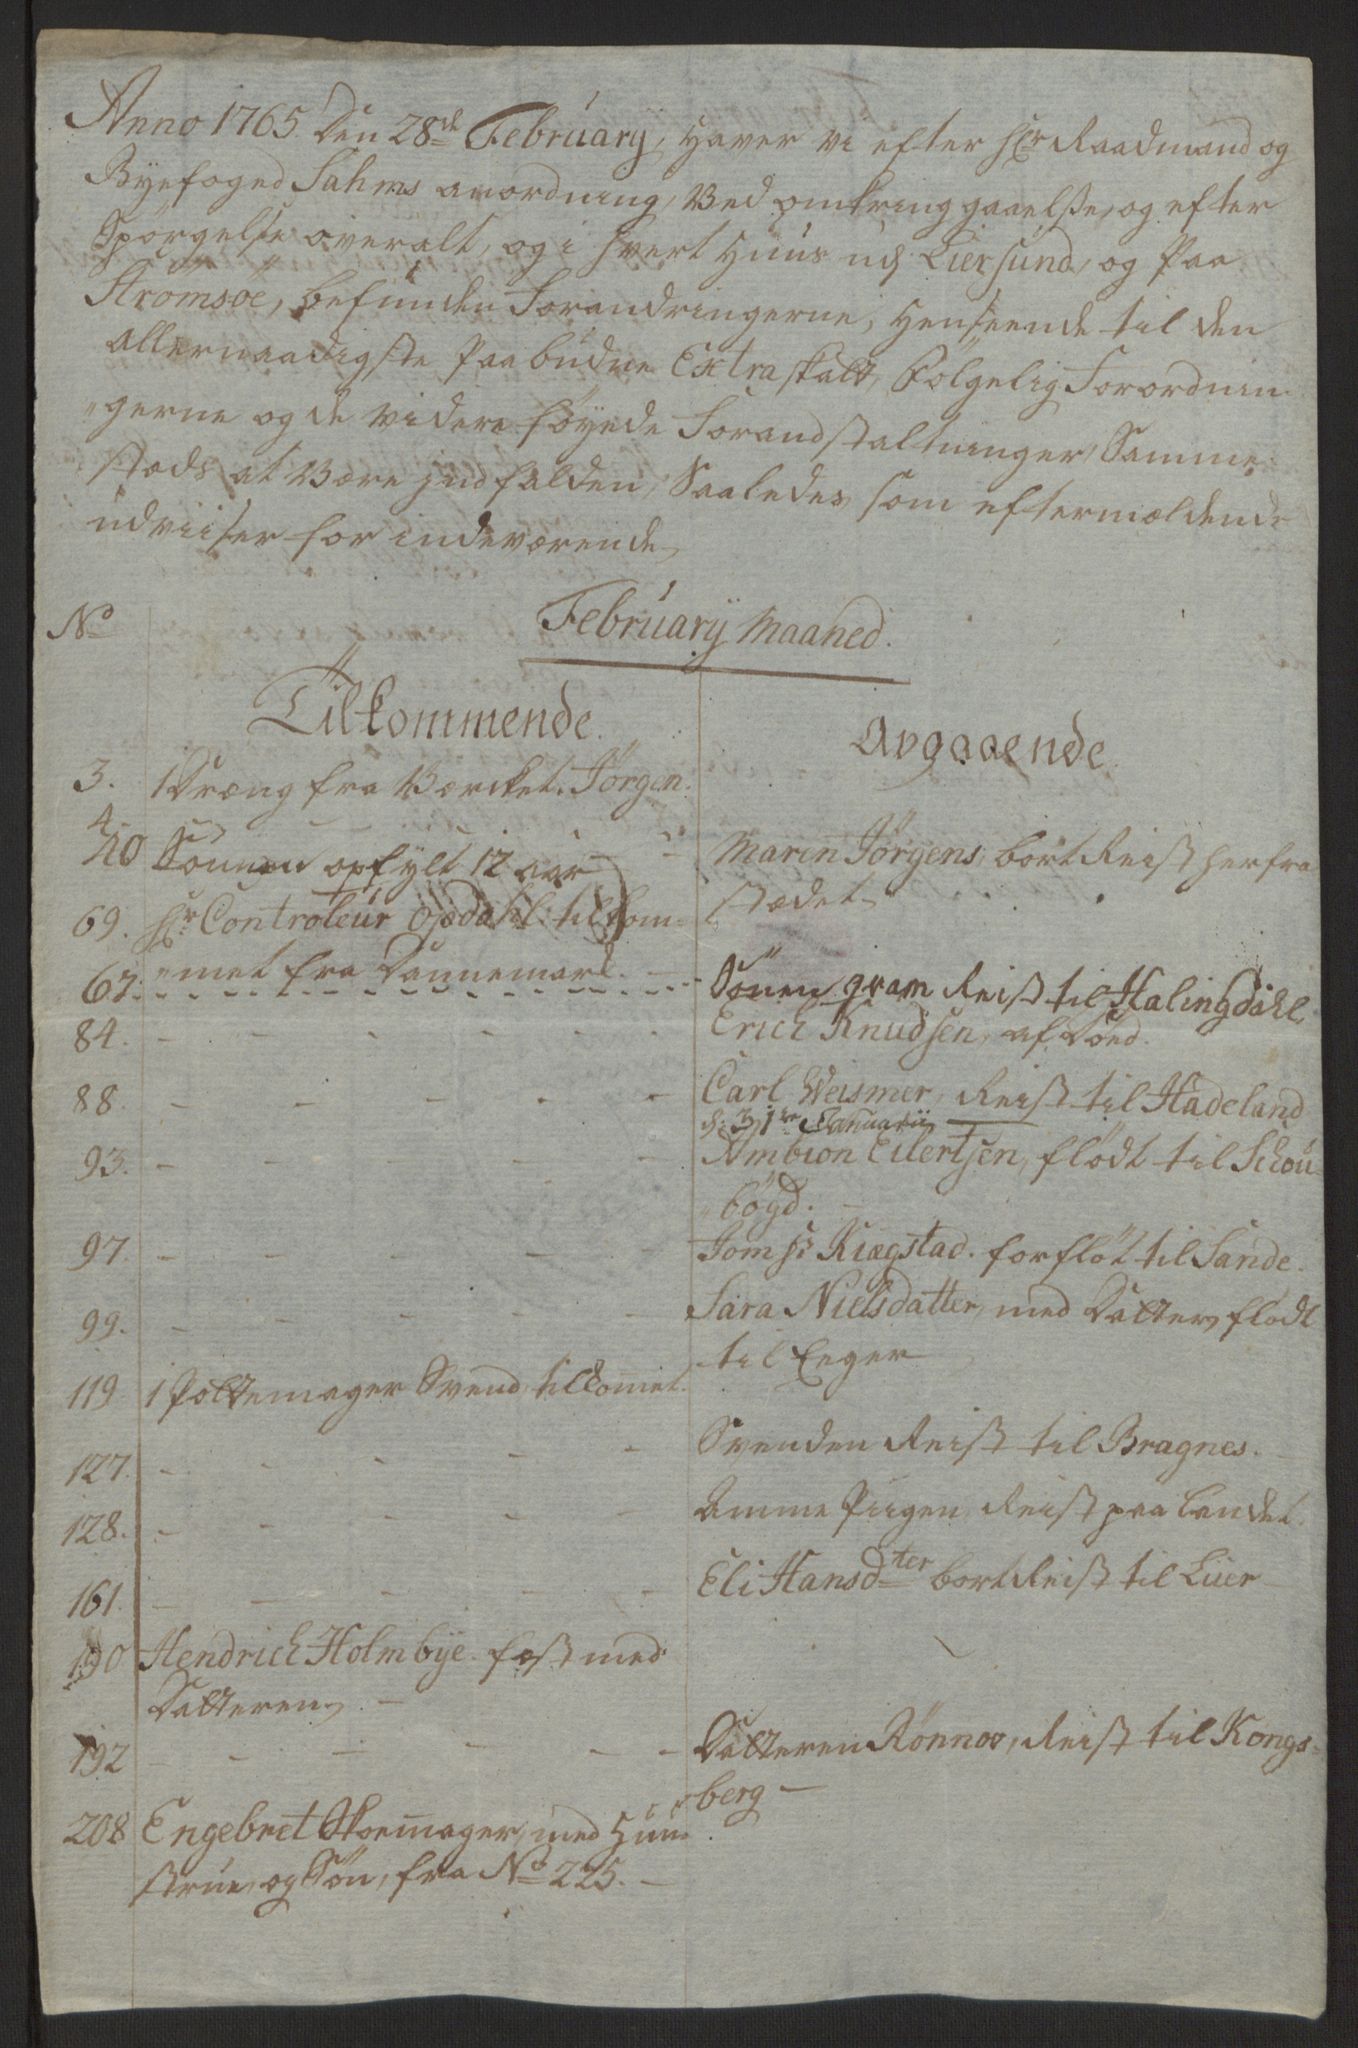 Anno 1765. Den 28de February, haver vi efter Hr Raadmand og
Byefoged Sahms anordning, ved omkring gaaelse, og efter
Spörgelse overalt, og i hvert Huus udj Liersund, og Paa
Strömsöe, befunden Forandringerne, henseende til den
allernaadigste Paabudne Extraskatt, Fölgelig Forordnin
gerne og de videre föyede Foranstaltninger, Samme
stæds at være indfalden, Saaledes som eftermældende
udviiser for indeværende
No
Februarÿ Maaned.
Tilkommende.
Avgaaende
3. 1 Dræng fra Værcket. Jörgen.
4.
40 Sönnen opfylt 12 aar
Maren Jörgens, bort Reist herfra
stædet
69. Hr Controleur Opdahl. tilkom-
met fra Dannemark. -
67. Sönen gram Reist til Halingdahl
84. - - - - - Erich Knudsen, af Döed.
88. - - - - - Carl Weismer, Reist til Hadeland
d: 31te Januarii
93. - - - - - Ambion Eilertsen, flödt til Schou-
bögd. -
97. - - - - - Kiægstad. forflöt til Sande.
99. - - - - - Sara Nielsdatter, med Datter, flödt
til Eeger
119 1 Pottemager Svend, tilkomet.
127. - - - - - Svenden Reist til Bragnes. -
128. - - - - - Amme Piigen, Reist paa Landet.
161. - - - - - Eli Hansdter bortReist til Liier -
190 Hendrich Holmbÿe. fæst med
Datteren, -
192 - - - - - Datteren Rönnov, Reist til Kongs-
berg -
208 Engebret Skoemager, med Huu-
strue, og Sön, fra No 225. -